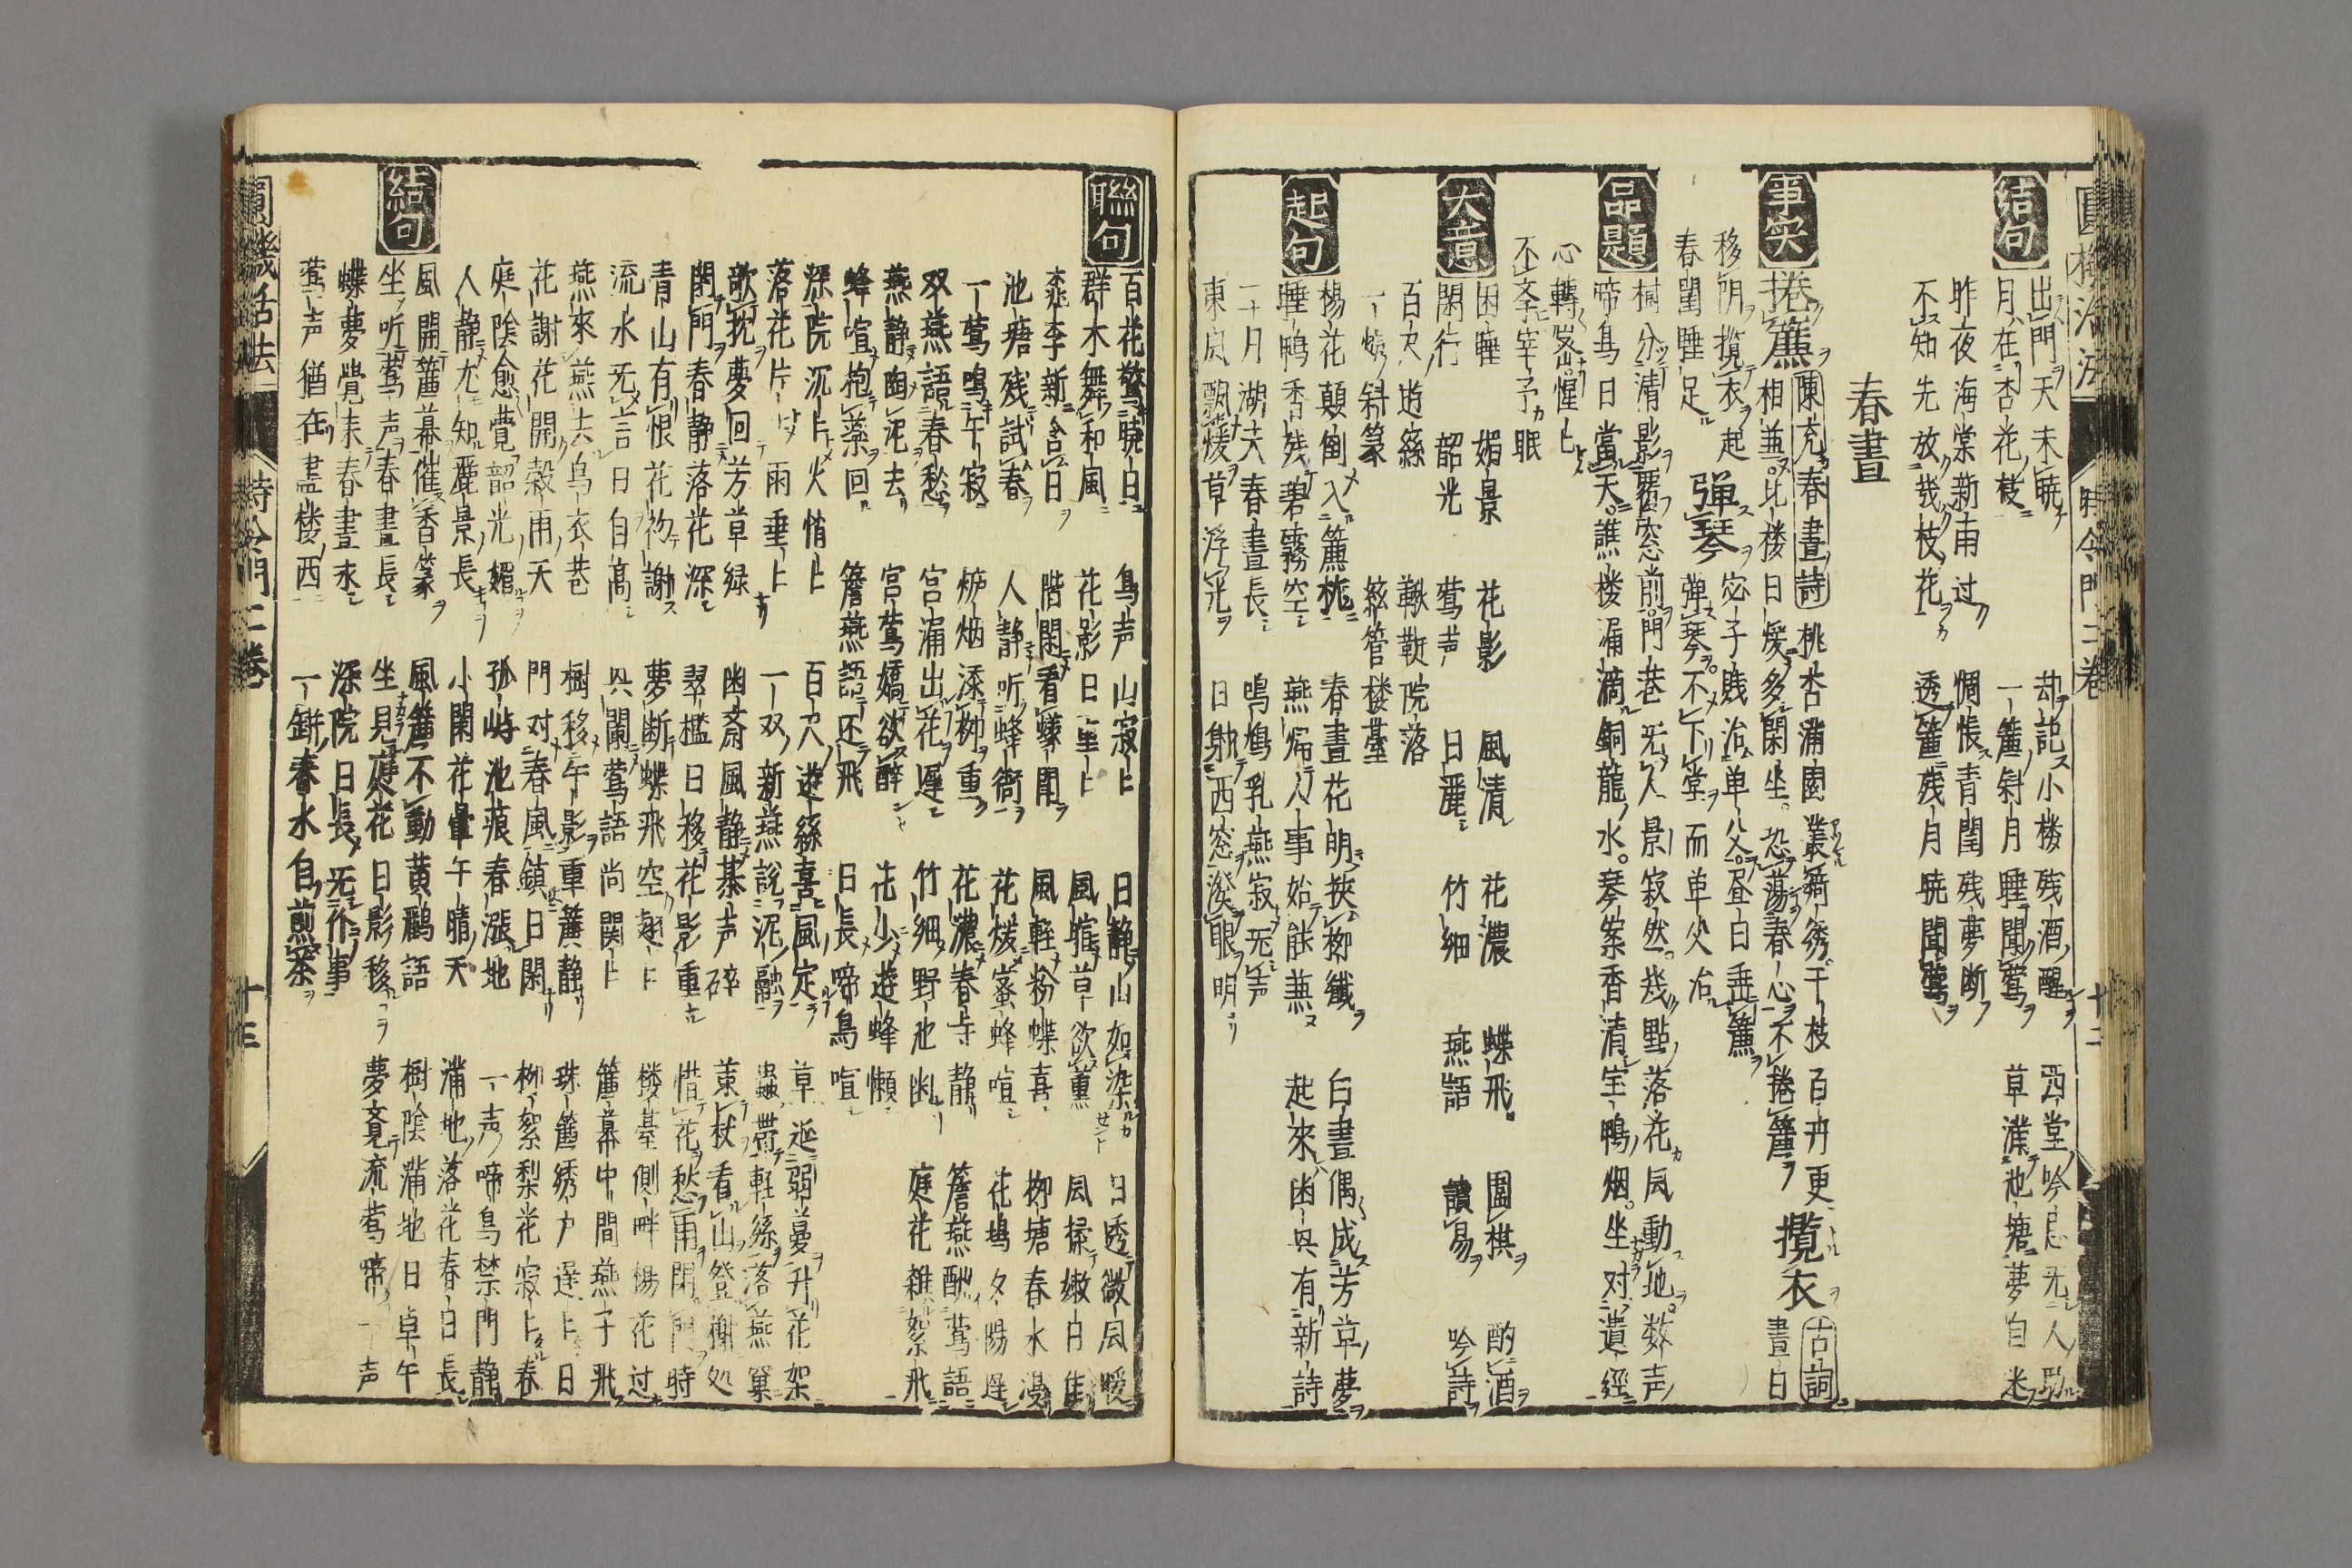 結句
出門天未暁 却説小楼残酒醒 西堂吟
月在杏花枝 一簾斜月睡聞鶯 草 池塘夢自迷
昨夜海棠新雨过 惆悵青閨残夢断
不知先放幾枝花 透簾残月暁聞鶯
春晝
事实
捲簾 陳充春晝詩 桃杏滿園叢 綉千枝百卉更 攬衣 古詞
相並比楼日煖多閑坐恐蕩春心不捲簾 晝日
移阴攬衣起 弾琴 宓子賎治单父昼日垂簾
春閨睡足 弾琴不下堂而单父治
品題
樹分清影覆窓前門巷无人景寂然幾點落花风動地数声
啼鳥日當天譙楼漏滴銅龍水琴案香清宝鴨烟坐对遺經
心轉 惺〻
不 宰予眠
大意
困睡 媚景 花影 風清 花濃 蝶飛 圍棋 酌酒
閑行 韶光 鶯声 日麗 竹細 燕語 讀易 吟詩
百尺遊絲 鞦韆院落
斜篆 絃管楼臺
起句
楊花顛倒入簾栊 春晝花明挾柳纖 白晝偶成芳草夢
睡鴨香残碧霧空 燕帰人事始 兼 起來幽興有新詩
二月湖 春晝長 鳴鳩乳燕寂无声
東风飄煖草浮光 日射西窓 眼明
聯句
百花驚曉日 鳥声山寂〻 日静山如染 日透微风暖
群木舞和風 花影日重〻 風暄草欲薫 风
桃李新含日 階閑看蟻閗 風軽粉蝶喜 柳塘春水漫
池塘残試春 人静听蜂衙 花煖蜜蜂喧 花塢夕陽遅
一鶯鳴午寂 炉烟添柳重 花濃春寺静 簷燕酬鶯語
双燕語春愁 宮漏出花遅 竹細野池幽 庭花雜絮飛
燕静 泥去 宮鶯嬌欲醉 花少遊蜂懶
蜂喧抱蘂回 簷燕語还飛 日長啼鳥喧
深院沉〻火悄〻 百尺遊絲喜風定 草 弱蔓升花架
落花片〻雨垂〻 一双新燕説泥融 蟲帶軽絲落燕窠
欹枕夢回芳草緑 幽斎風静棊声碎 杖看山登 処
閉門春静落花深 翠檻日移花影重 惜花愁雨閉門時
青山有恨花 謝 夢断蝶飛空 〻 楼臺側畔楊花过
流水无言日自高 興闌鶯語尚関〻 簾幕中間燕子飛
燕來燕去烏衣巷 樹移午影重簾静 珠簾綉户遅〻日
花謝花開穀雨天 門对春風鎖日閑 柳絮梨花寂〻春
庭陰愈覺韶光媚 孤 池痕春漲地 一声啼鳥禁門静
人静尤知麗景長 小閑花 午晴天 滿地落花春日長
結句
風開簾幕催香篆 風簾不動黄鸝語 樹陰滿地日卓午
坐听鶯声春晝長 坐見庭花日影移 夢 流鶯啼一声
蝶夢覺來春晝永 深院日長无个事
鶯声猶在畫楼西 一缾春水自煎茶
圓機活法 時令門二巻 十三